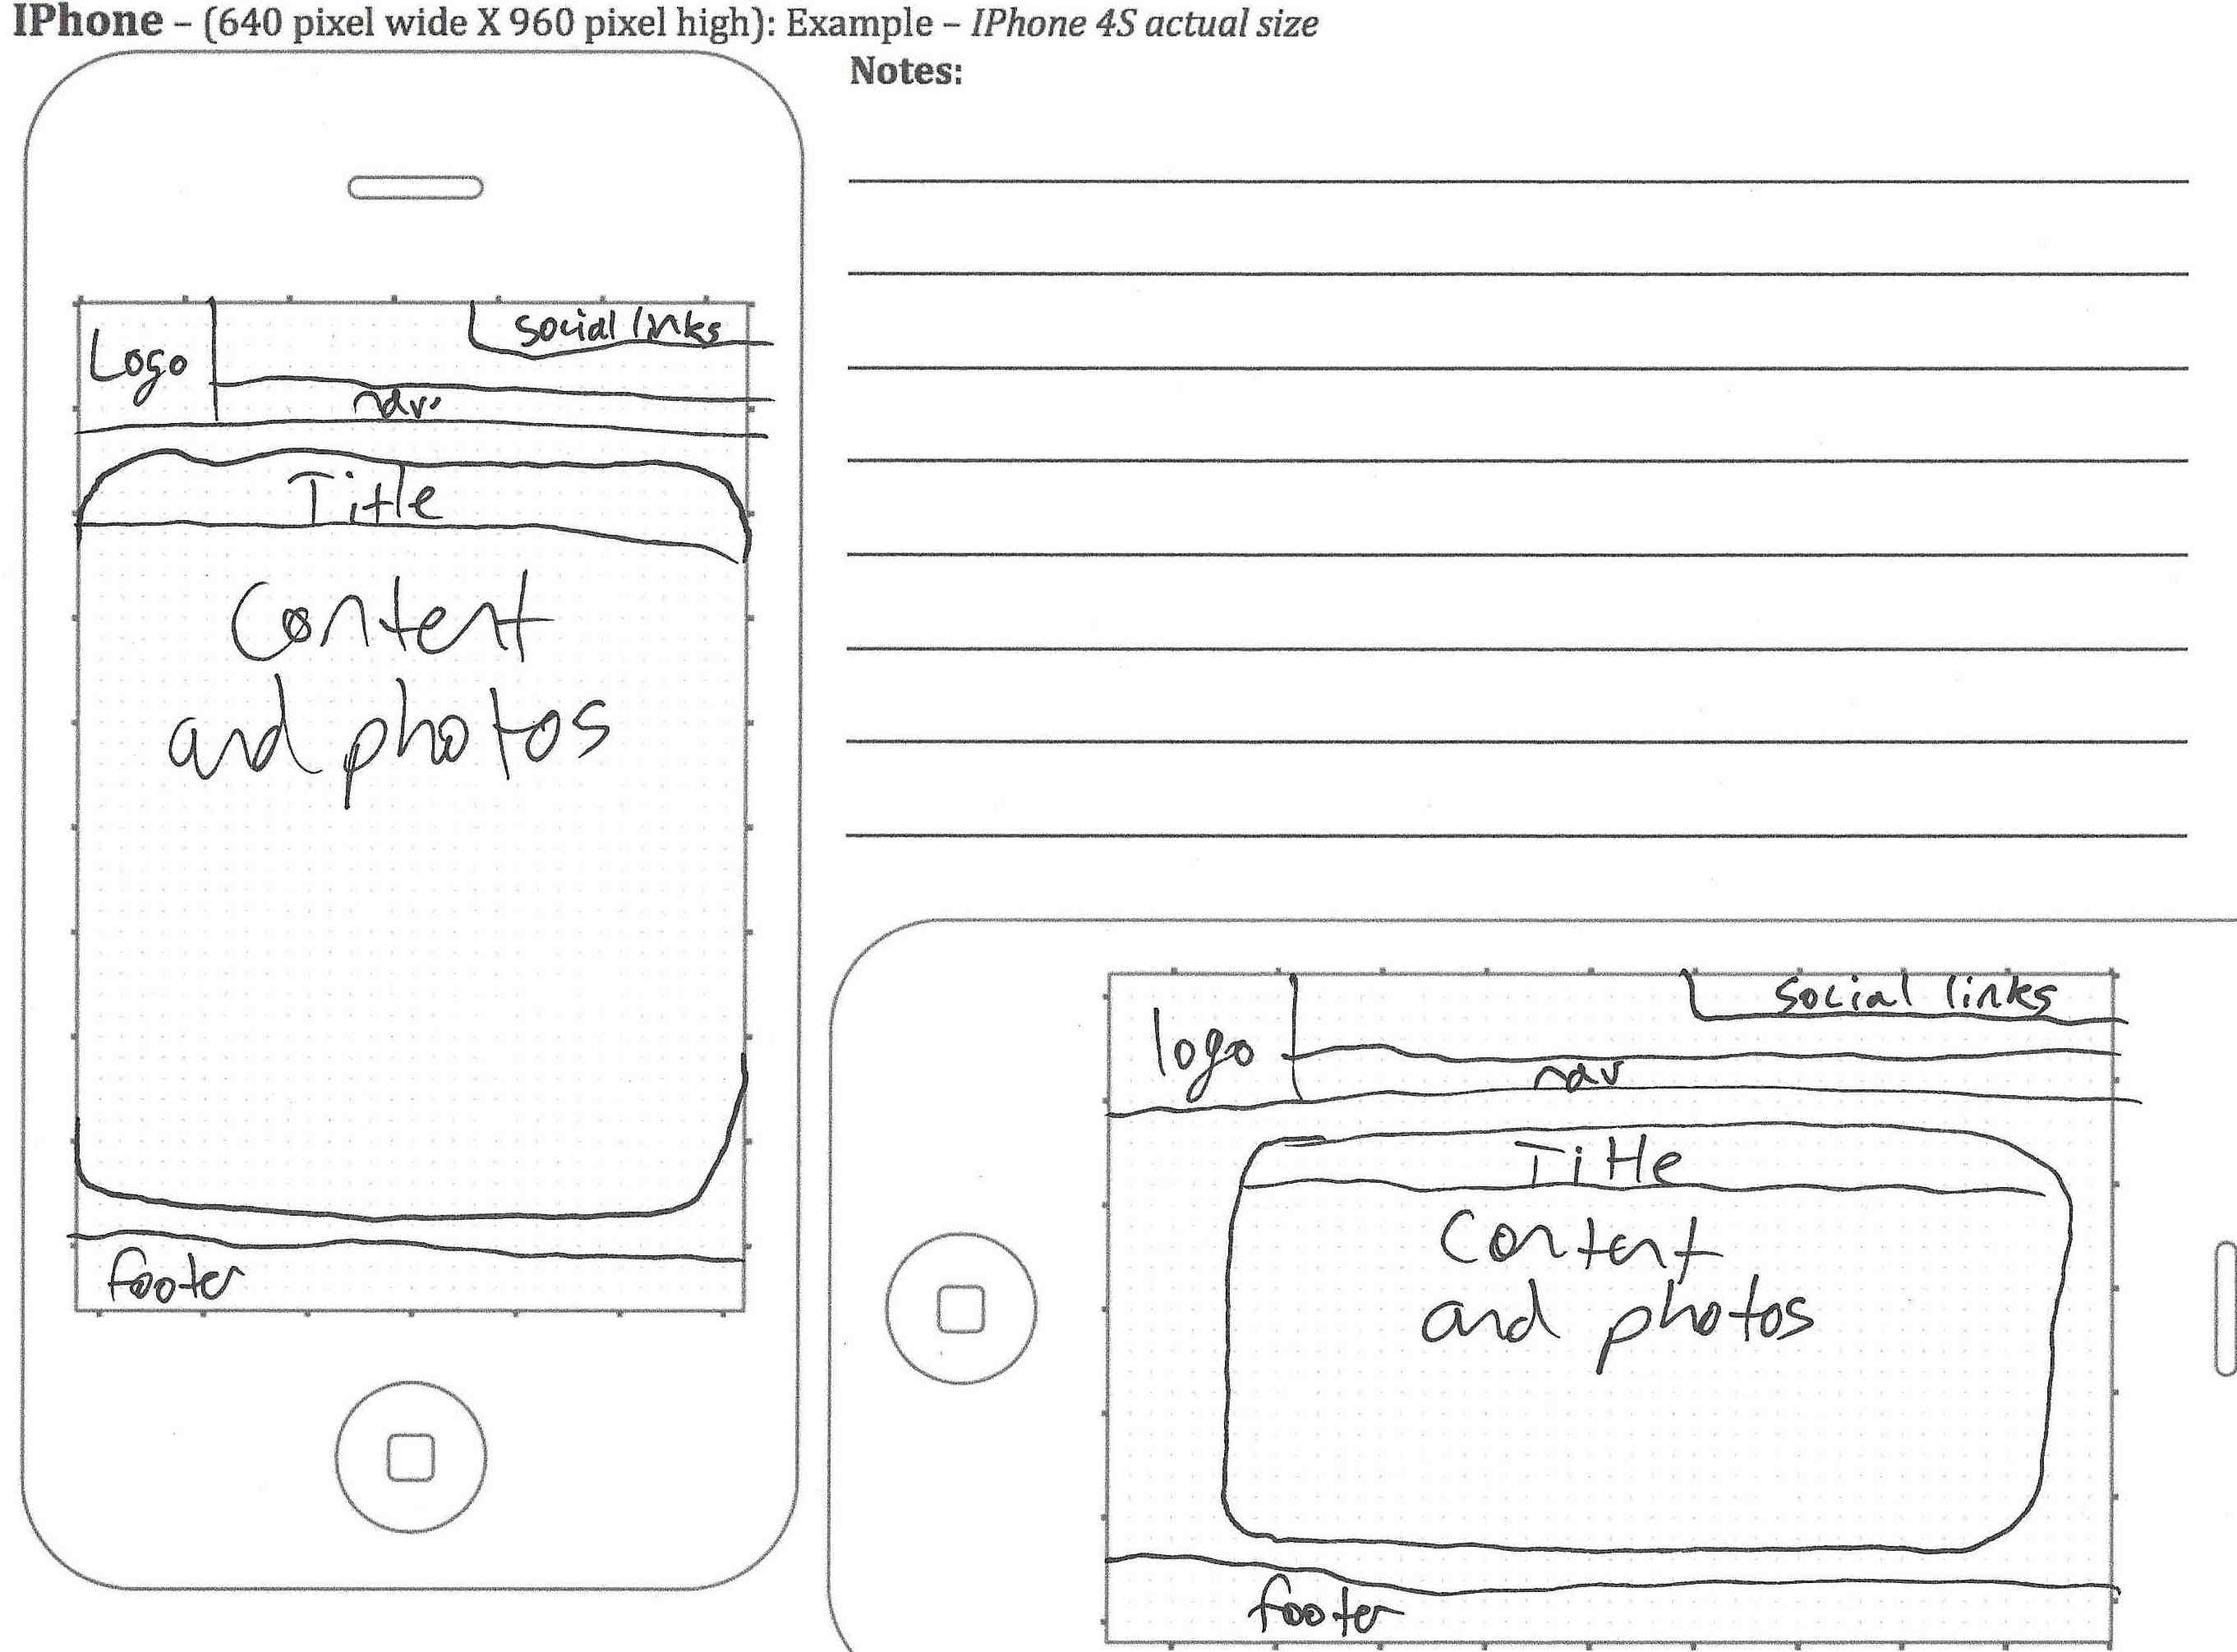 IPhone – (640 pixel wide X 960 pixel high): Example – IPhone 4S actual size
Notes:
social links
Logo
nav.
Title
Content
and photos
footer
social links
logo
nav
Title
Content
and photos
footer